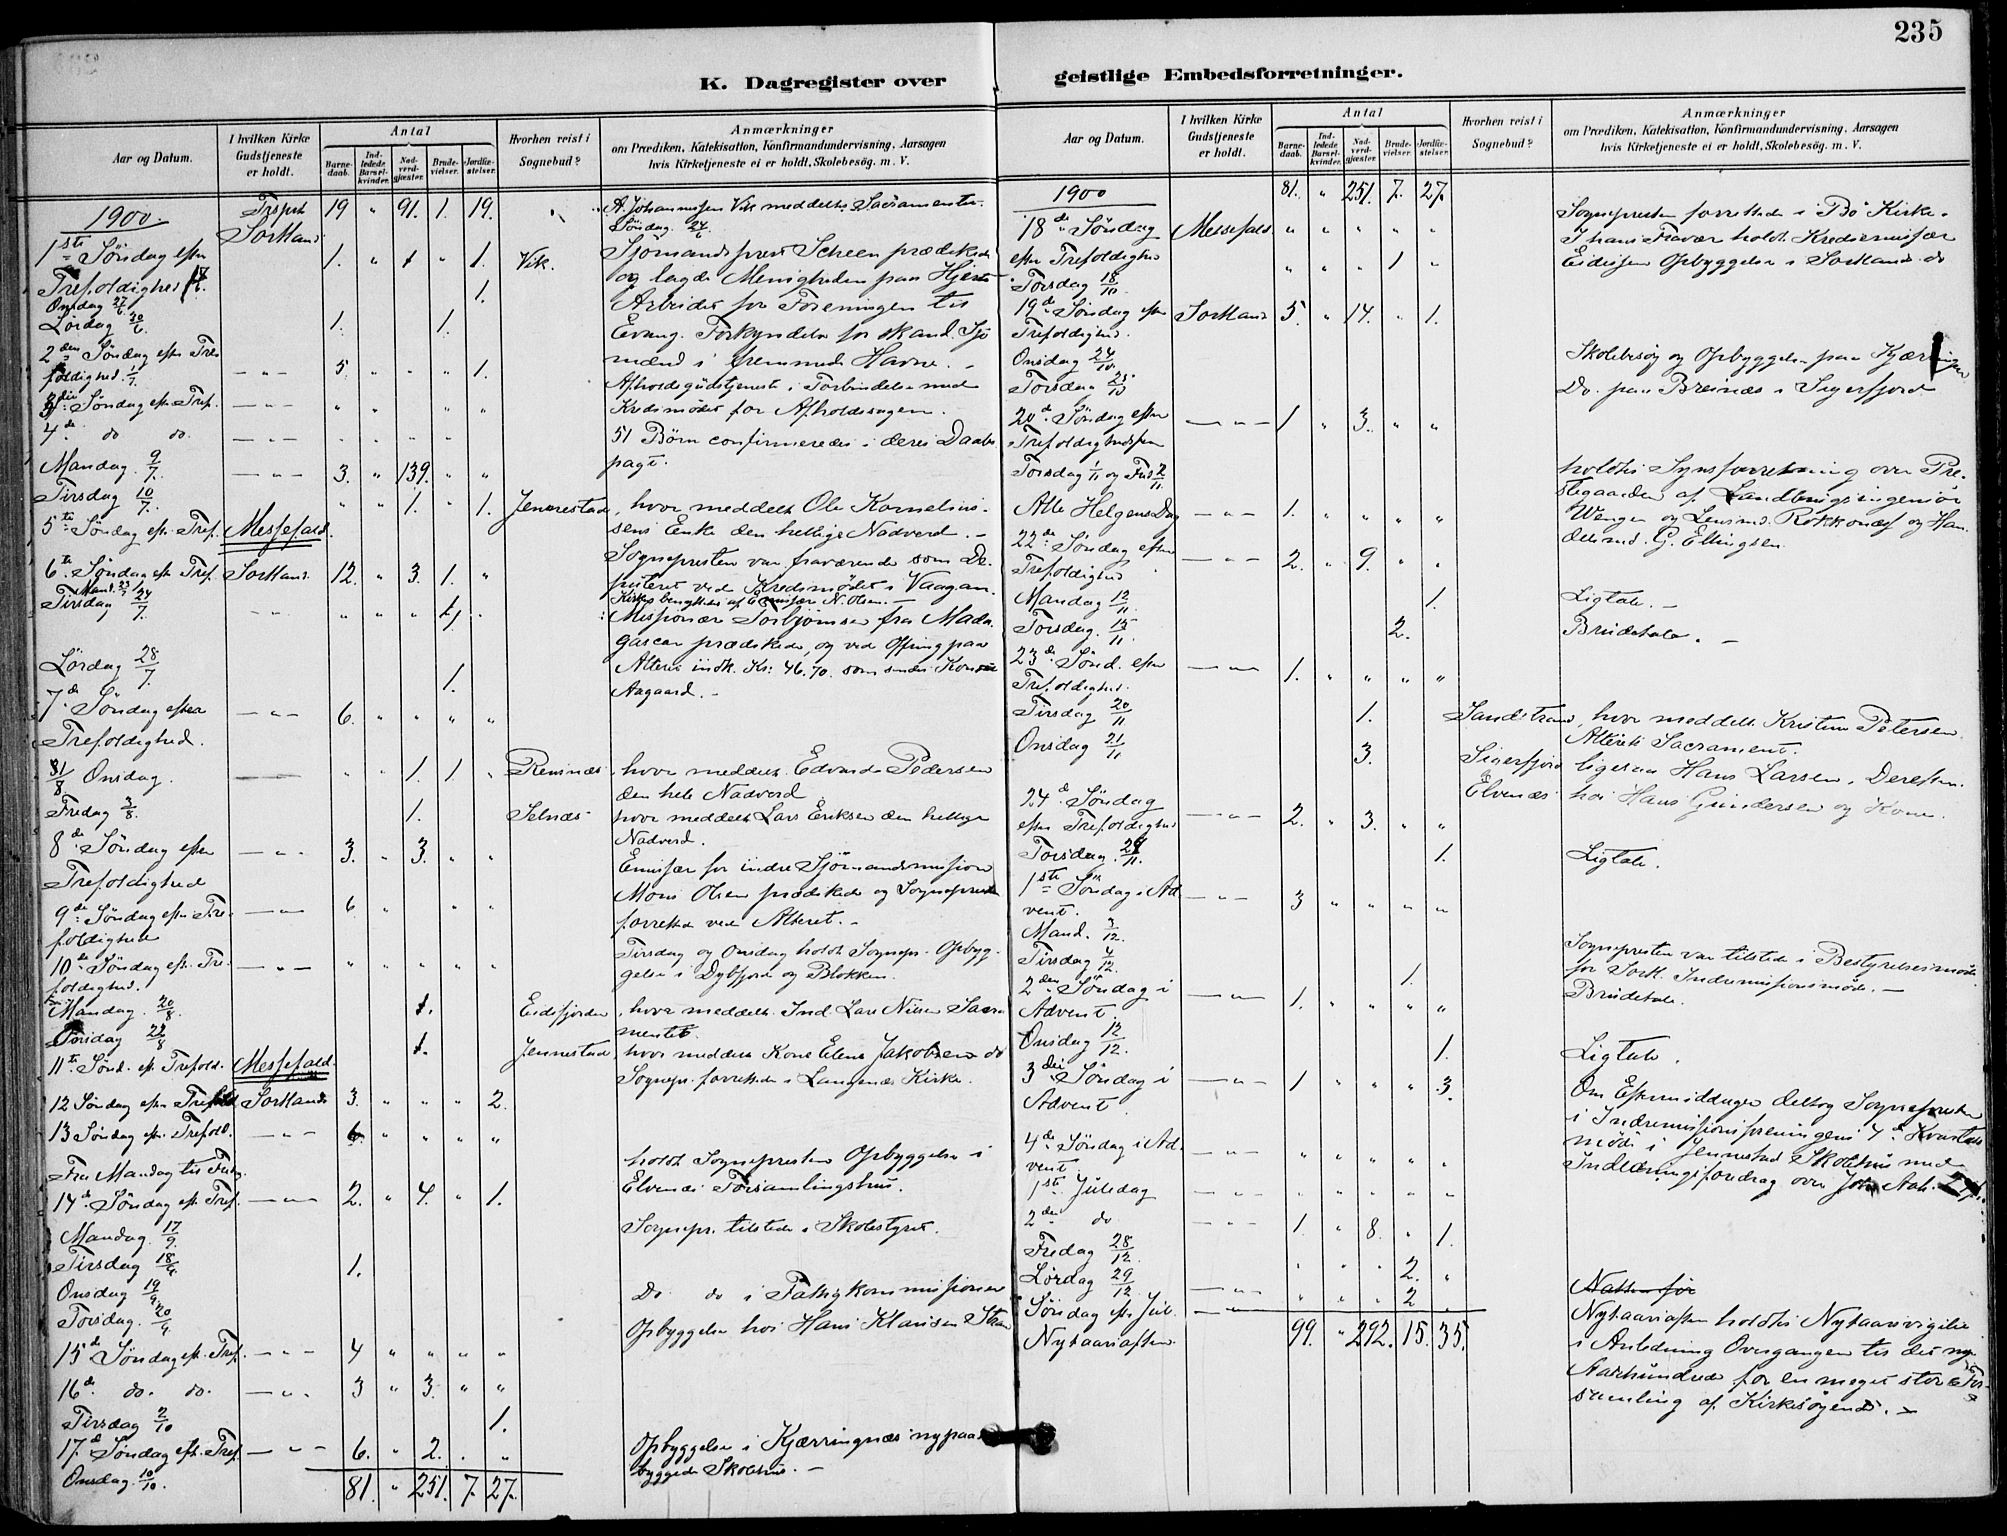 235
K. Dagregister over geistlige Embedsforretninger.
Aar og Datum. I hvilken Kirke Gudstjeneste er holdt. Antal Barnedaab. Indledede Barselkvinder. Nadverdgjæster. Brudevielser. Jordfæstelser. Hvorhen reist i Sognebud? Anmærkninger om Prædiken, Katekisation, Konfirmandundervisning. Aarsagen hvis Kirketjeneste ei er holdt, Skolebesög. m. V.
1900. Trspt 19 " 91. 1. 19. A. Johannessen Vik meddeltes Sacramentet.
Sortland Söndag 24/6.
1ste Söndag efter 1. " 1 " 1. Vik. Sjömandsprest Scheen prædikede
Trefoldighed og lagde Menigheden paa Hjerte
Onsdag 27/6 1. Arbeidet for Foreningen til
Lördag 30/6. 1. 1. Evang. Forkyndelse for skand. Sjö
2den Söndag efter Tre mænd i fremmede Havne. -
foldighed. 1/7. — " — 5. " " " 1. Afholdsgudstjeneste i Forbindelse med
3die Söndag eft. Tref. — " — " " " " " Kredsmödet for Afholdssagen.
4de do do. — " — 51 Börn confirmeredes i deres Daabs
Mandag 9/7. — " — 3. " 139. " " pagt.
Tirsdag 10/7. " " 1. " 1. Jennestad, hvor meddelt Ole Kornelius-
5te Söndag eft. Tref. Messefald. sens Enke den hellige Nadverd. -
6te Söndag eft Tref. Sortland. 12. " 3. 1. " Sognepresten var fraværende som De-
Mand. 23/7 puteret ved Kredsmödet i Vaagan.
Tirsdag 24/7. Kirken benyttedes af Emissær N. Olsen. -
Missionær Torbjörnsen fra Mada-
gascar prædikede, og ved Offring paa
Lördag 28/7. 1. Alteret indk. Kr: 46.70. som sendes
Aagaard. -
7de Söndag efter — " — 6. " " " "
Trefoldighed.
8 Onsdag. " " 1. 1. " Reinsnæs, hvor meddelt Edvard Pedersen
den hele Nadverd
Fredag 3/8. 1. Selnæs hvor meddelt Lars Eriksen den hellige
Nadverd.
8de Söndag efter — " — 3. " 3. " "
Trefoldighed Emissær for indre Sjömandsmission
9de Söndag efter Tre- — " — 6 " " " Mons Olsen prædikede og Sognepresten
foldighed forrettede ved Alteret. -
Tirsdag og Onsdag holdt Sognepr. Opbyg-
10de Söndag eft. Tre- — " — " " " " " gelse i Dybfjord og Blokken.
foldighed.
Mandag. 20/8. 1. Eidsfjorden, hvor meddelt Ind. Lars Nilsen Sacra
mentet.
Tirsdag 1. Jennestad, hvor meddelt Kone Elen Jakobsen do
11te Sönd. eft Trefold. Messefald. Sognepr. forrettede i Langenæs Kirke.
12 Söndag efter Trefold Sortland 3. " " " 2.
13 Söndag eft. Trefold. — " — 6. " " " "
Fra Mandag til Fredag. holdt Sognepresten Opbyggelse i
14de Söndag eft. Tref. — " — 2. " 4. " 1. Elvenæs Forsamlingshus.
Mandag 17/9. Sognepr. tilstede i Skolestyret.
Tirsdag 18/9. 1.
Onsdag 19/9. Do do i Fattigkommissionen
Torsdag. 20/9. Opbyggelse hos Hans Klausen Strand
15de Söndag eft. Tref. — " — 4 " " " "
16de do. do. — " — 3 " 3. " "
Tirsdag 2/10 1.
17de Söndag eft. Tref. — " — 6. " 2. " " Opbyggelse i Kjærringnæs nypaa-
Onsdag. 10/10. byggede Skolehus. -
81. " 251. 7. 27.
Aar og Datum. I hvilken Kirke Gudstjeneste er holdt. Antal Barnedaab. Indledede Barselkvinder. Nadverdgjæster. Brudevielser. Jordfæstelser. Hvorhen reist i Sognebud? Anmærkninger om Prædiken, Katekisation, Konfirmandundervisning. Aarsagen hvis Kirketjeneste ei er holdt, Skolebesög. m. V.
1900 81. " 251. 7. 27.
18de Söndag Messefald " " " " " Sognepresten forrettede i Bö Kirke.
efter Trefoldighed I hans Fravær holdt Kredsemissær
Torsdag 18/10. " " " 1 " Eidissen Opbyggelse i Sortland. do
19de Söndag efter Sortland 5. " 14. " 1.
Trefoldighed.
Onsdag 24/10. Skolebesög og Opbyggelse paa
Torsdag 25/10 Do. paa Breinæs i Sigerfjord
20de Söndag efter — " — 1 " 3. " "
Trefoldighedsfesten
Torsdag 1/11 og Fred 2/11. holdtes Synsforretning over Pre-
stegaarden af Landbrugsingeniör
Alle Helgens Dag — " — 1. " " " " Wenger og Lensmd. Rokkones og Han
delsmd. G. Ellingsen.
22de Söndag efter — " — 2. " 9. " "
Trefoldighed
Mandag 12/11. 1. Ligtale. -
Torsdag. 15/11. 2. Brudetale. -
23de Sönd. efter — " — 1. " " " "
Trefoldighed.
Tirsdag 20/11 1. Sandstrand, hvor meddelt Kristine Petersen
Alterets Sacrament.
Onsdag 21/11 3. Sigerfjord ligesaa Hans Larsen. Derefter
Elvenæs hos Hans Gundersen og Kone.
24de Söndag — " — 2. " 3. " "
efter Trefoldighed
Torsdag. 29/11. 1. Ligtale.
1ste Söndag i Ad- — " — 3 " " " "
vent.
Mand. 3/12.
Tirsdag 4/12. 1. Sognepresten var tilstede i Bestyrelsesmöde
for Sortl. Indremissionsmöde. -
2den Söndag i — " — 1. " " " " Brudetale.
Advent.
Onsdag 12/12. 1. Ligtale.
3die Söndag i — " — 1 " " " 3. Om Eftermiddagen deltog Sognepresten
Advent i Indremissionsforeningens 4de Kvartals
4de Söndag i Ad- — " — " " " " " möde i Jennestad Skolehus med
vent Indledningsforedrag over Joh.
1ste Juledag — " — " " " " "
2den do — " — 1. " 8. " 1.
Fredag 28/12 " " " 2. "
Lördag 29/12. — " — " " " 2 "
Söndag eft. Jul. — " —
Nytaarsaften 99. " 292. 15. 35.
Nytaarsaften holdtes Nytaarsvigilie
i Anledning Overgangen til det nye
Aarhundrede for en meget stor For-
samling af Kirkesögende. -